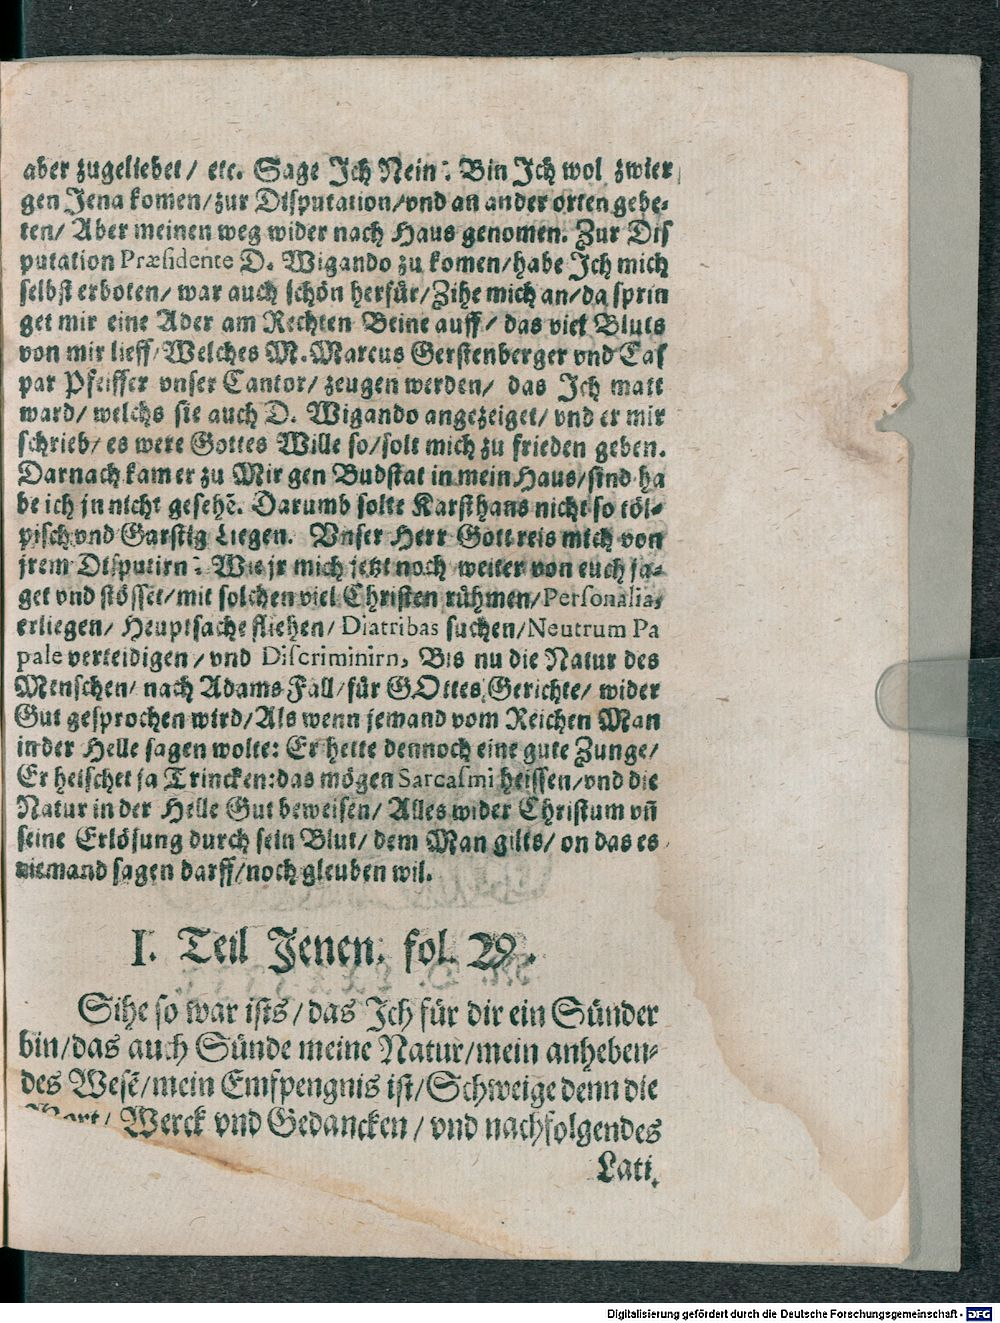 aber zugeliebet/ etc. Sage Jch Nein: Bin Jch wol zwier
gen Jena komen/zur Disputation/vnd an ander orten gebe-
ten/ Aber meinen weg wider nach Haus genomen. Zur Dis
putation Præsidente D. Wigando zu komen/habe Jch mich
selbst erboten/ war auch schön herfür/Zihe mich an/da sprin
get mir eine Ader am Rechten Beine auff/ das viel Bluts
von mir lieff/Welches M. Marcus Gerstenberger vnd Cas
par Pfeiffer vnser Cantor/ zeugen werden/ das Jch matt
ward/ welchs sie auch D. Wigando angezeiget/ vnd er mir
schrieb/ es were Gottes Wille so/solt mich zu frieden geben.
Darnach kam er zu Mir gen Budstat in mein Haus/sind ha
be ich jn nicht gesehẽ. Darumb solte Karsthans nicht so töl-
pisch vnd Garstig Liegen. Vnser Herr Gott reis mich von
jrem Disputirn: Wie jr mich jetzt noch weiter von euch ja-
get vnd stösset/mit solchen viel Christen rühmen/Personalia,
erliegen/ Heuptsache fliehen/ Diatribas suchen/Neutrum Pa
pale verteidigen/ vnd Discriminirn, Bis nu die Natur des
Menschen/ nach Adams Fall/für GOttes Gerichte/ wider
Gut gesprochen wird/Als wenn jemand vom Reichen Man
in der Helle sagen wolte: Er hette dennoch eine gute Zunge/
Er heischet ja Trincken:das mögen Sarcasmi heissen/vnd die
Natur in der Helle Gut beweisen/ Alles wider Christum vñ
seine Erlösung durch sein Blut/ dem Man gilts/ on das es
niemand sagen darff/noch gleuben wil.
I. Teil Jenen. fol. 29.
Sihe so war ists/das Jch für dir ein Sünder
bin/das auch Sünde meine Natur/mein anheben-
des Wesẽ/mein Emfpengnis ist/Schweige denn die
Wort/ Werck vnd Gedancken/ vnd nachfolgendes
Lati.
Digitalisierung gefördert durch die Deutsche Forschungsgemeinschaft - DFG